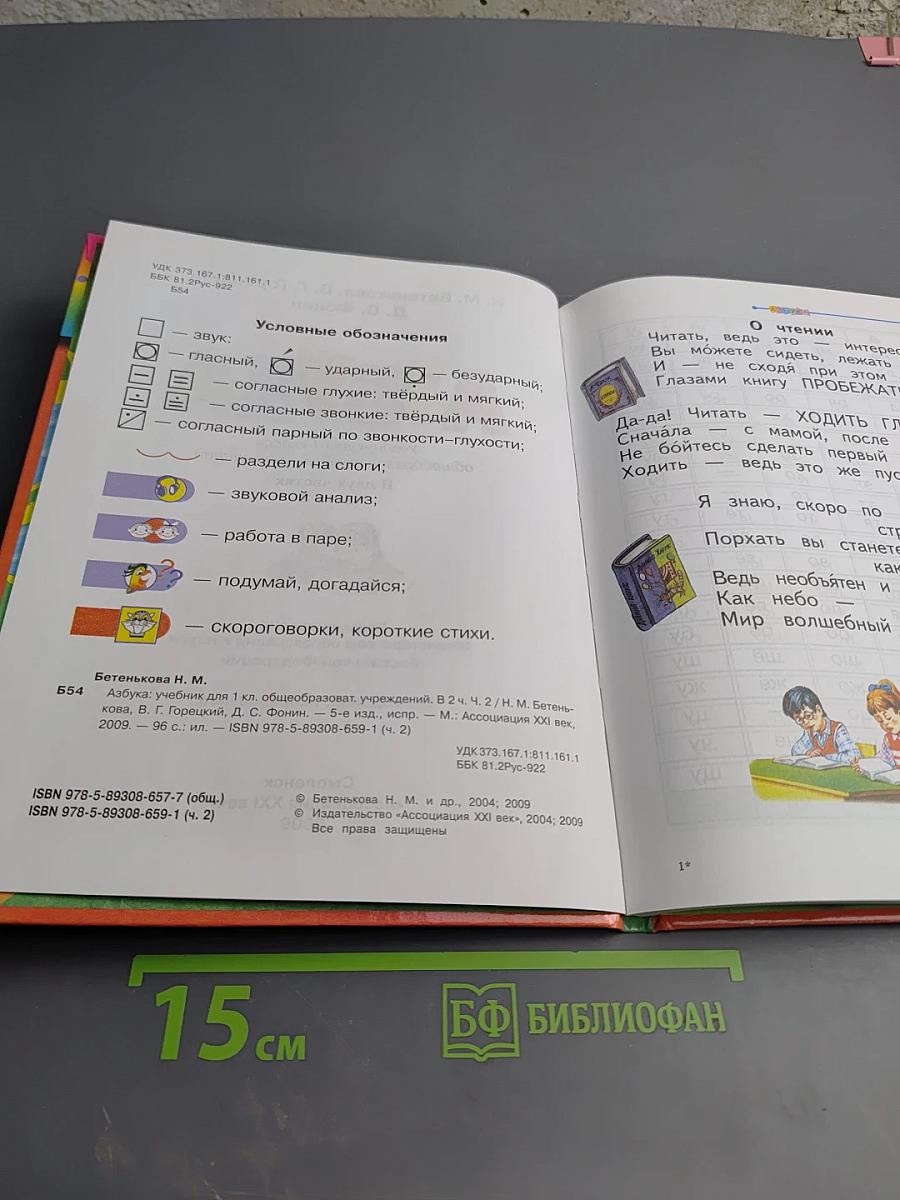 УДК 373.167.1:811.161.1
ББК 81.2Рус-922
Б54
Условные обозначения
— звук:
— гласный, — ударный, — безударный;
— согласные глухие: твёрдый и мягкий;
— согласные звонкие: твёрдый и мягкий;
— согласный парный по звонкости–глухости;
— раздели на слоги;
— звуковой анализ;
— работа в паре;
— подумай, догадайся;
— скороговорки, короткие стихи.
Бетенькова Н. М.
Б54 Азбука: учебник для 1 кл. общеобразоват. учреждений. В 2 ч. Ч. 2 / Н. М. Бетень-
кова, В. Г. Горецкий, Д. С. Фонин. — 5-е изд., испр. — М.: Ассоциация XXI век,
2009. — 96 с.: ил. — ISBN 978-5-89308-659-1 (ч. 2)
УДК 373.167.1:811.161.1
ББК 81.2Рус-922
ISBN 978-5-89308-657-7 (общ.)
ISBN 978-5-89308-659-1 (ч. 2)
© Бетенькова Н. М. и др., 2004; 2009
© Издательство «Ассоциация XXI век», 2004; 2009
Все права защищены
О чтении
Читать, ведь это — интерес
Вы мо́жете сидеть, лежать
И — не сходя́ при этом
Глазами книгу ПРОБЕЖАТ
Да-да! Читать — ХОДИТЬ ГЛ
Снача́ла — с мамой, после
Не бо́йтесь сделать первый
Ходить — ведь это же пус
Я знаю, скоро по
стр
Порхать вы станете
как
Ведь необъя́тен и
Как небо —
Мир волшебный
1*
15 см
БФ БИБЛИОФАН